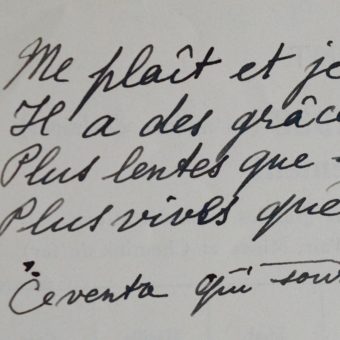 Me plaît et je
Il a des grâce
Plus lentes que
Plus vives que
qui sou